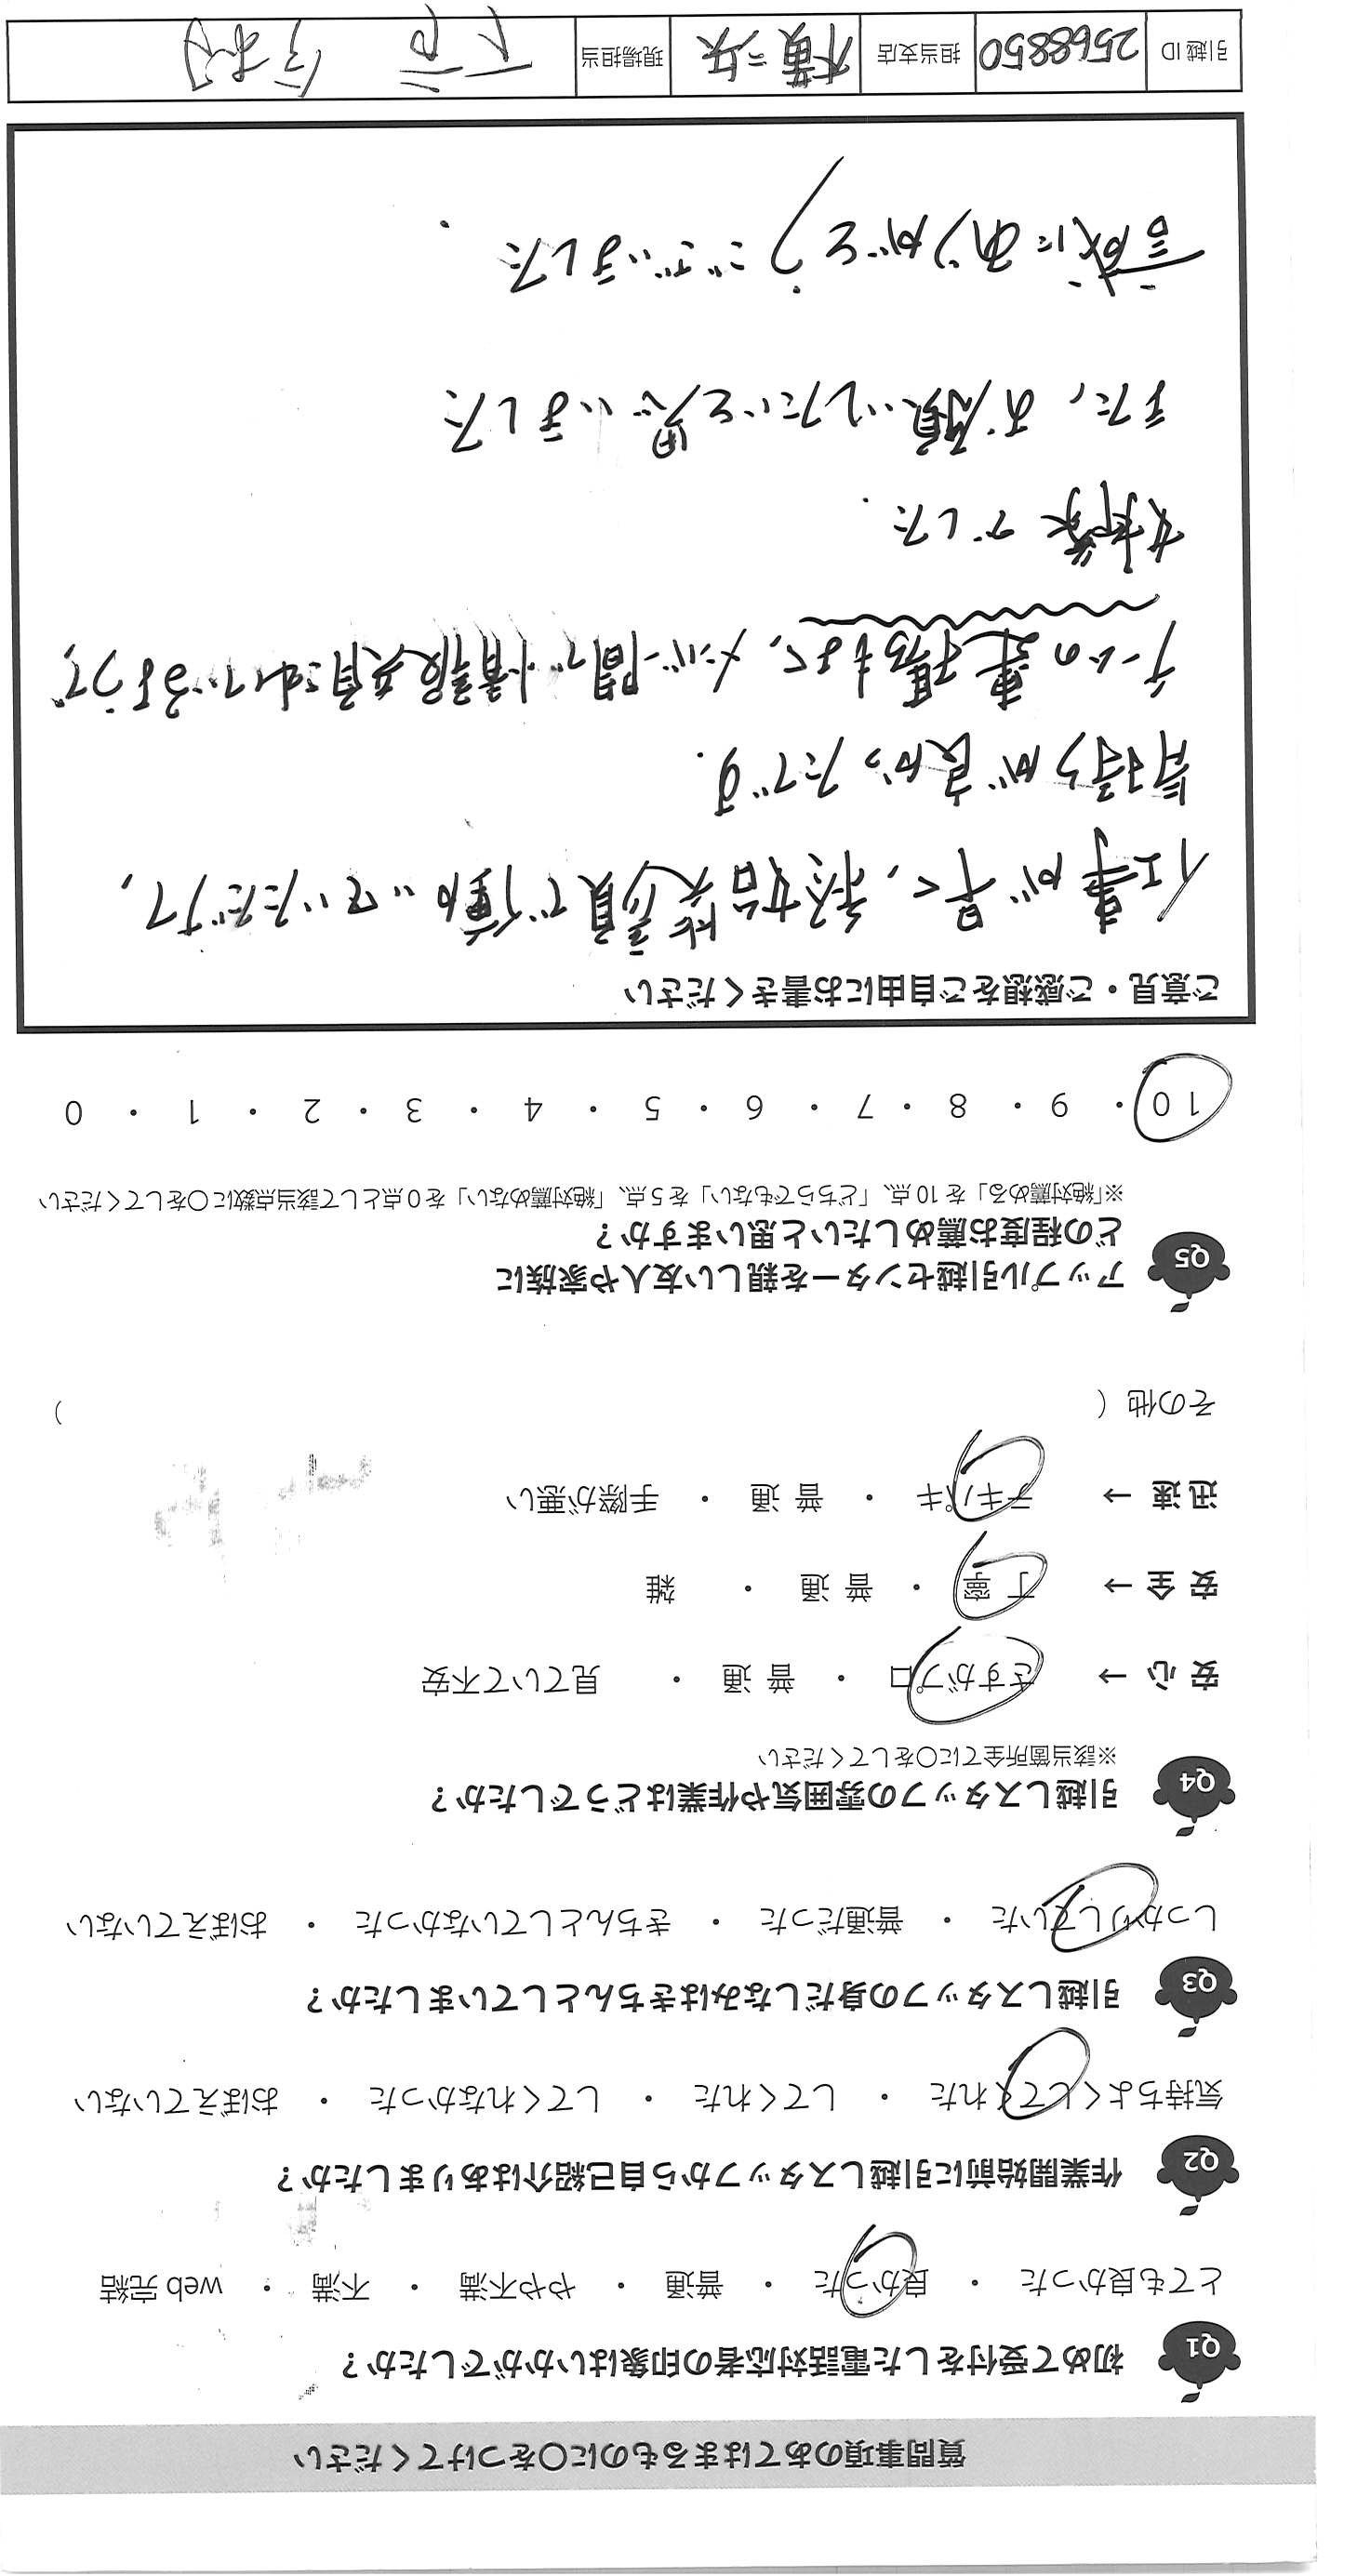 質問事項のあてはまるものに〇をつけてください
Q1 初めて受付をした電話対応者の印象はいかがでしたか？
とても良かった ・ 良かった ・ 普通 ・ やや不満 ・ 不満 ・ web 完結
Q2 作業開始前に引越しスタッフから自己紹介はありましたか？
気持ちよくしてくれた ・ してくれた ・ してくれなかった ・ おぼえていない
Q3 引越しスタッフの身だしなみはきちんとしていましたか？
しっかりしていた ・ 普通だった ・ きちんとしていなかった ・ おぼえていない
Q4 引越しスタッフの雰囲気や作業はどうでしたか？
※該当箇所全てに〇をしてください
安 心 → さすがプロ ・ 普 通 ・ 見ていて不安
安 全 → 丁 寧 ・ 普 通 ・ 雑
迅 速 → テキパキ ・ 普 通 ・ 手際が悪い
その他（ ）
Q5 アップル引越センターを親しい友人や家族に
どの程度お薦めしたいと思いますか？
※「絶対薦める」を 10 点、「どちらでもない」を 5 点、「絶対薦めない」を 0 点として該当点数に〇をしてください
10 ・ 9 ・ 8 ・ 7 ・ 6 ・ 5 ・ 4 ・ 3 ・ 2 ・ 1 ・ 0
ご意見・ご感想をご自由にお書きください
仕事が早く、終始笑顔で働いていただけて、
気持ちが良かったです.
チームの連携もよく、メンバー間で情報共有されているようで、
でした.
また、お願いしたいと思いました
誠にありがとうございました.
引越 ID 2568850 担当支店 横二坂 現場担当